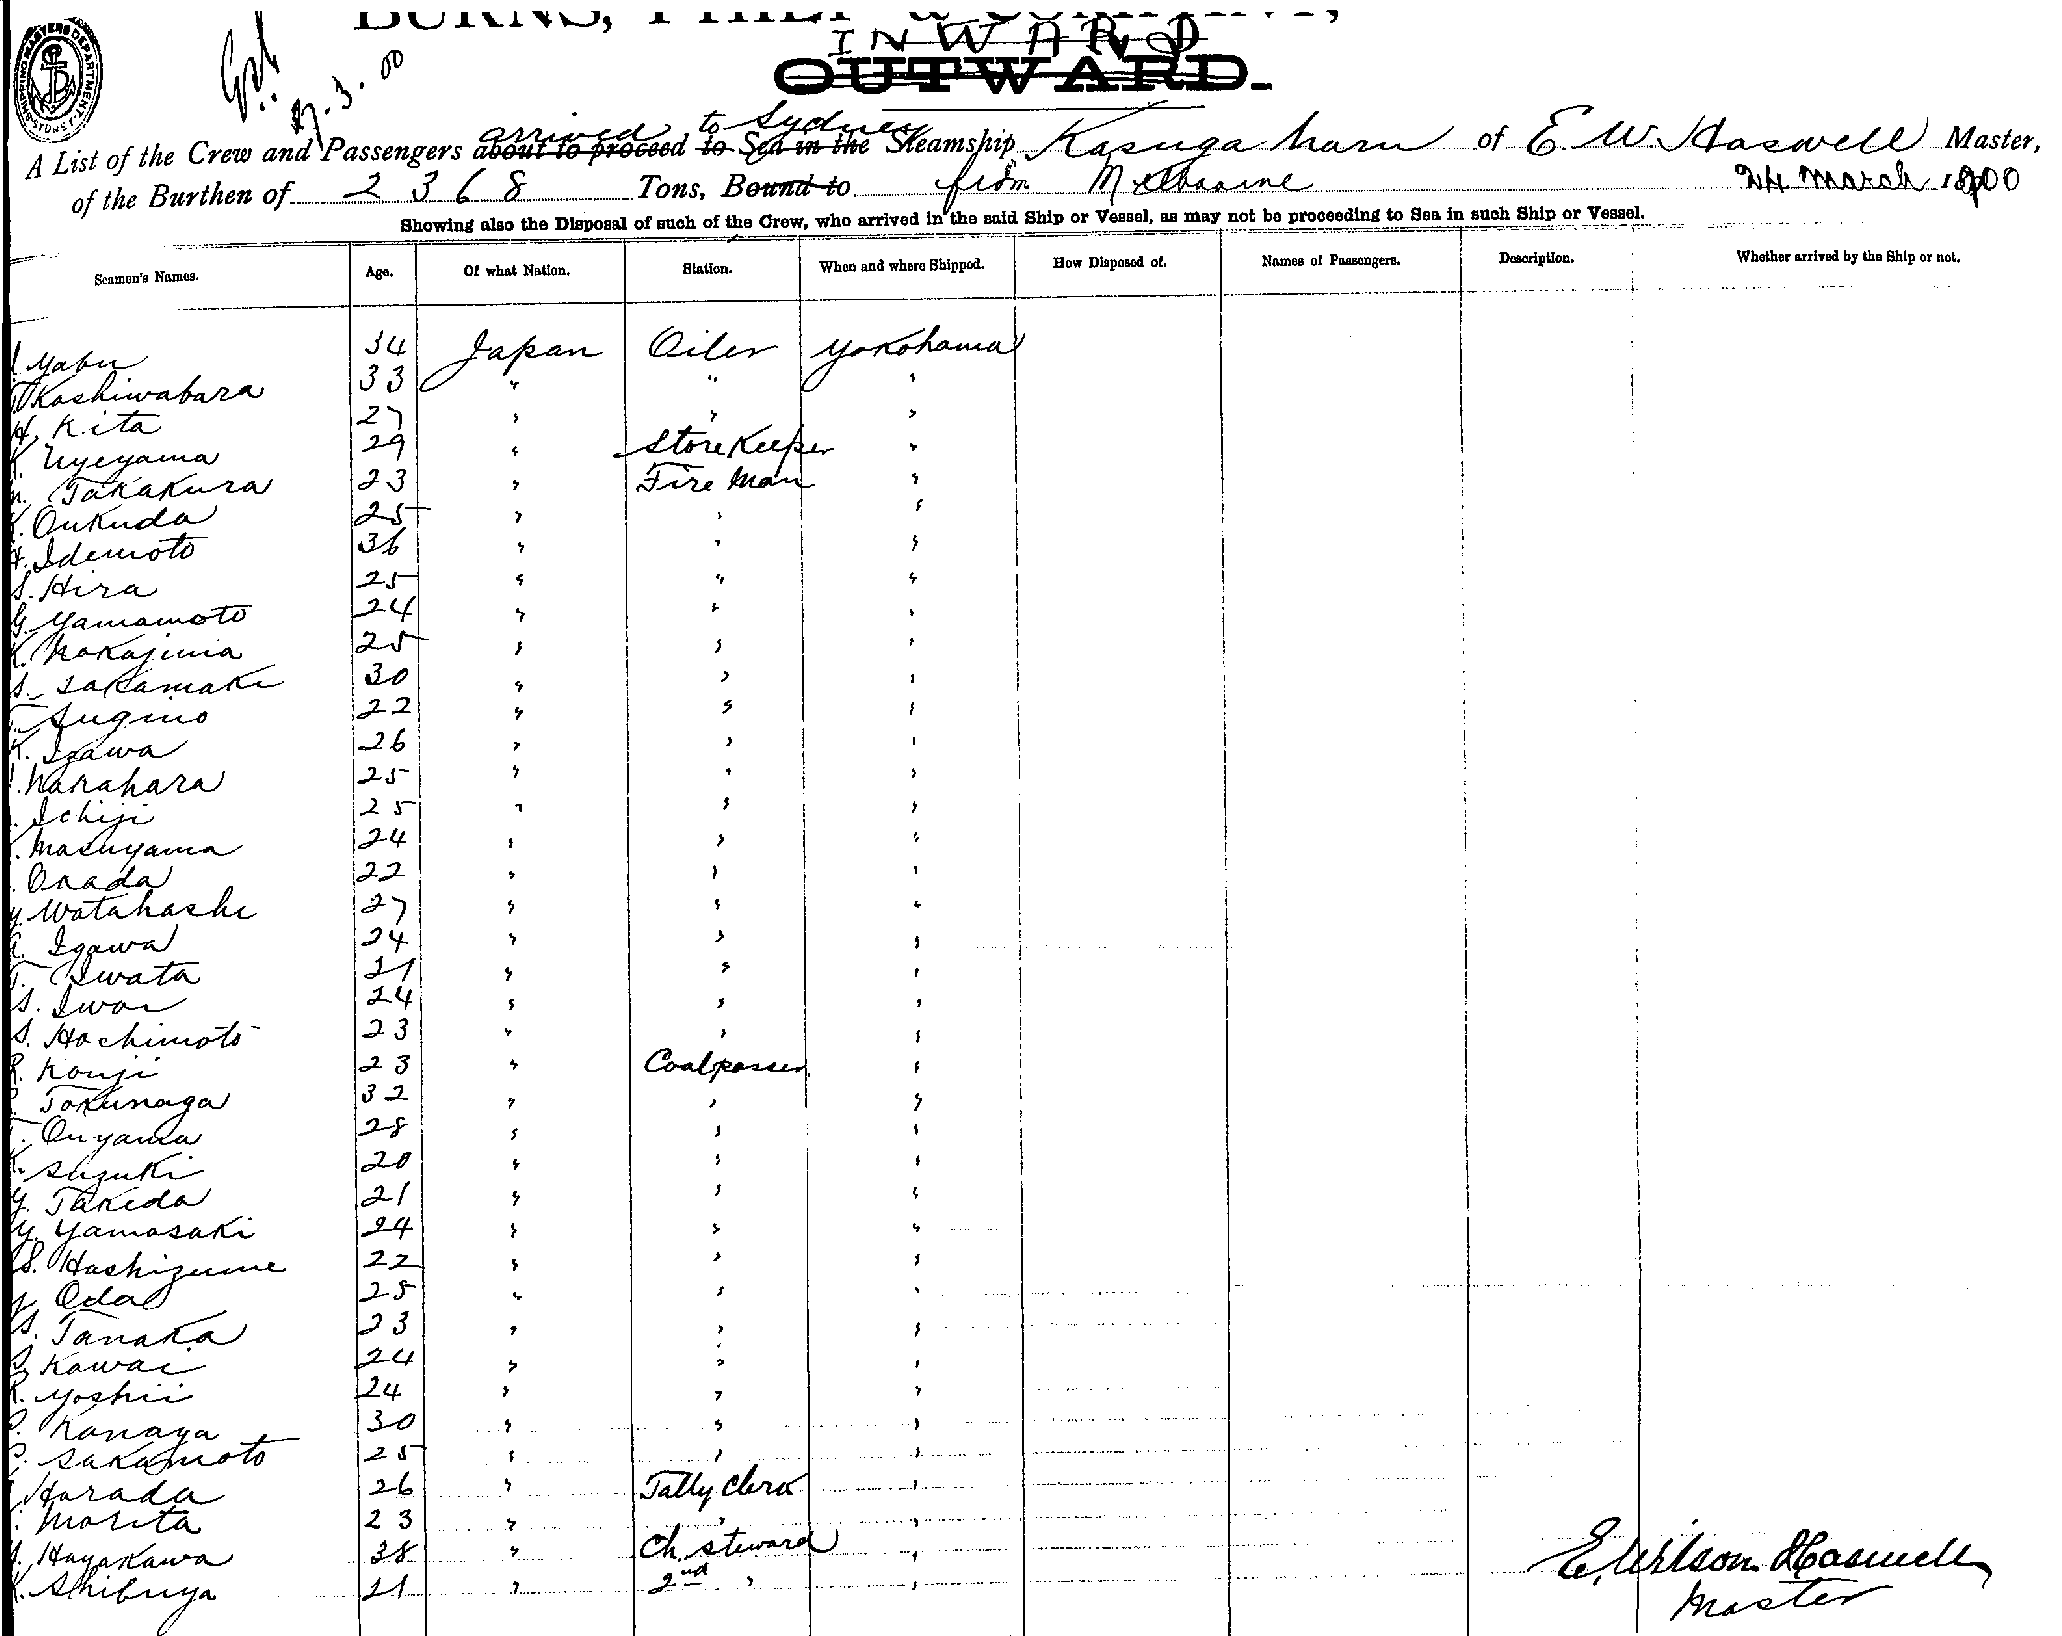 INWARD
OUTWARD.
27.3.00
arrived to Sydney
A List of the Crew and Passengers about to proceed to Sea in the Steamship Kasuga Maru of E. W. Haswell Master,
of the Burthen of 2368 Tons, Bound to from Melbourne 24 March 1900
Showing also the Disposal of such of the Crew, who arrived in the said Ship or Vessel, as may not be proceeding to Sea in such Ship or Vessel.
Seamen's Names. Age. Of what Nation. Station. When and where Shipped. How Disposed of. Names of Passengers. Description. Whether arrived by the Ship or not.
Yabu 34 Japan Oiler Yokohama
Kashiwabara 33 " " "
H. Kita 27 " " "
K. Uyeyama 29 " Store Keeper "
Takakura 23 " Fire Man "
K. Oukuda 25 " " "
H. Idemoto 36 " " "
S. Hira 25 " " "
G. Yamamoto 24 " " "
K. Nakajima 25 " " "
S. Sakamaki 30 " " "
T. Sugino 22 " " "
K. Igawa 26 " " "
Narahara 25 " " "
Ichiji 25 " " "
Masuyama 24 " " "
Okada 22 " " "
Y. Watahashi 27 " " "
Igawa 24 " " "
T. Iwata 21 " " "
S. Iwai 24 " " "
S. Hachimoto 23 " " "
R. Kouji 23 " Coalpasser "
Tokunaga 32 " " "
T. Ouyama 28 " " "
K. Suzuki 20 " " "
Y. Takeda 21 " " "
Y. Yamasaki 24 " " "
S. Hashizume 22 " " "
Y. Oda 25 " " "
S. Tanaka 23 " " "
Kawai 24 " " "
K. Yoshii 24 " " "
Kanaya 30 " " "
Sakamoto 25 " " "
Harada 26 " Tally Clerk "
Morita 23 " " "
Hayakawa 38 " Ch. Steward "
K. Shibuya 21 " 2nd " "
E. Wilson Haswell
Master